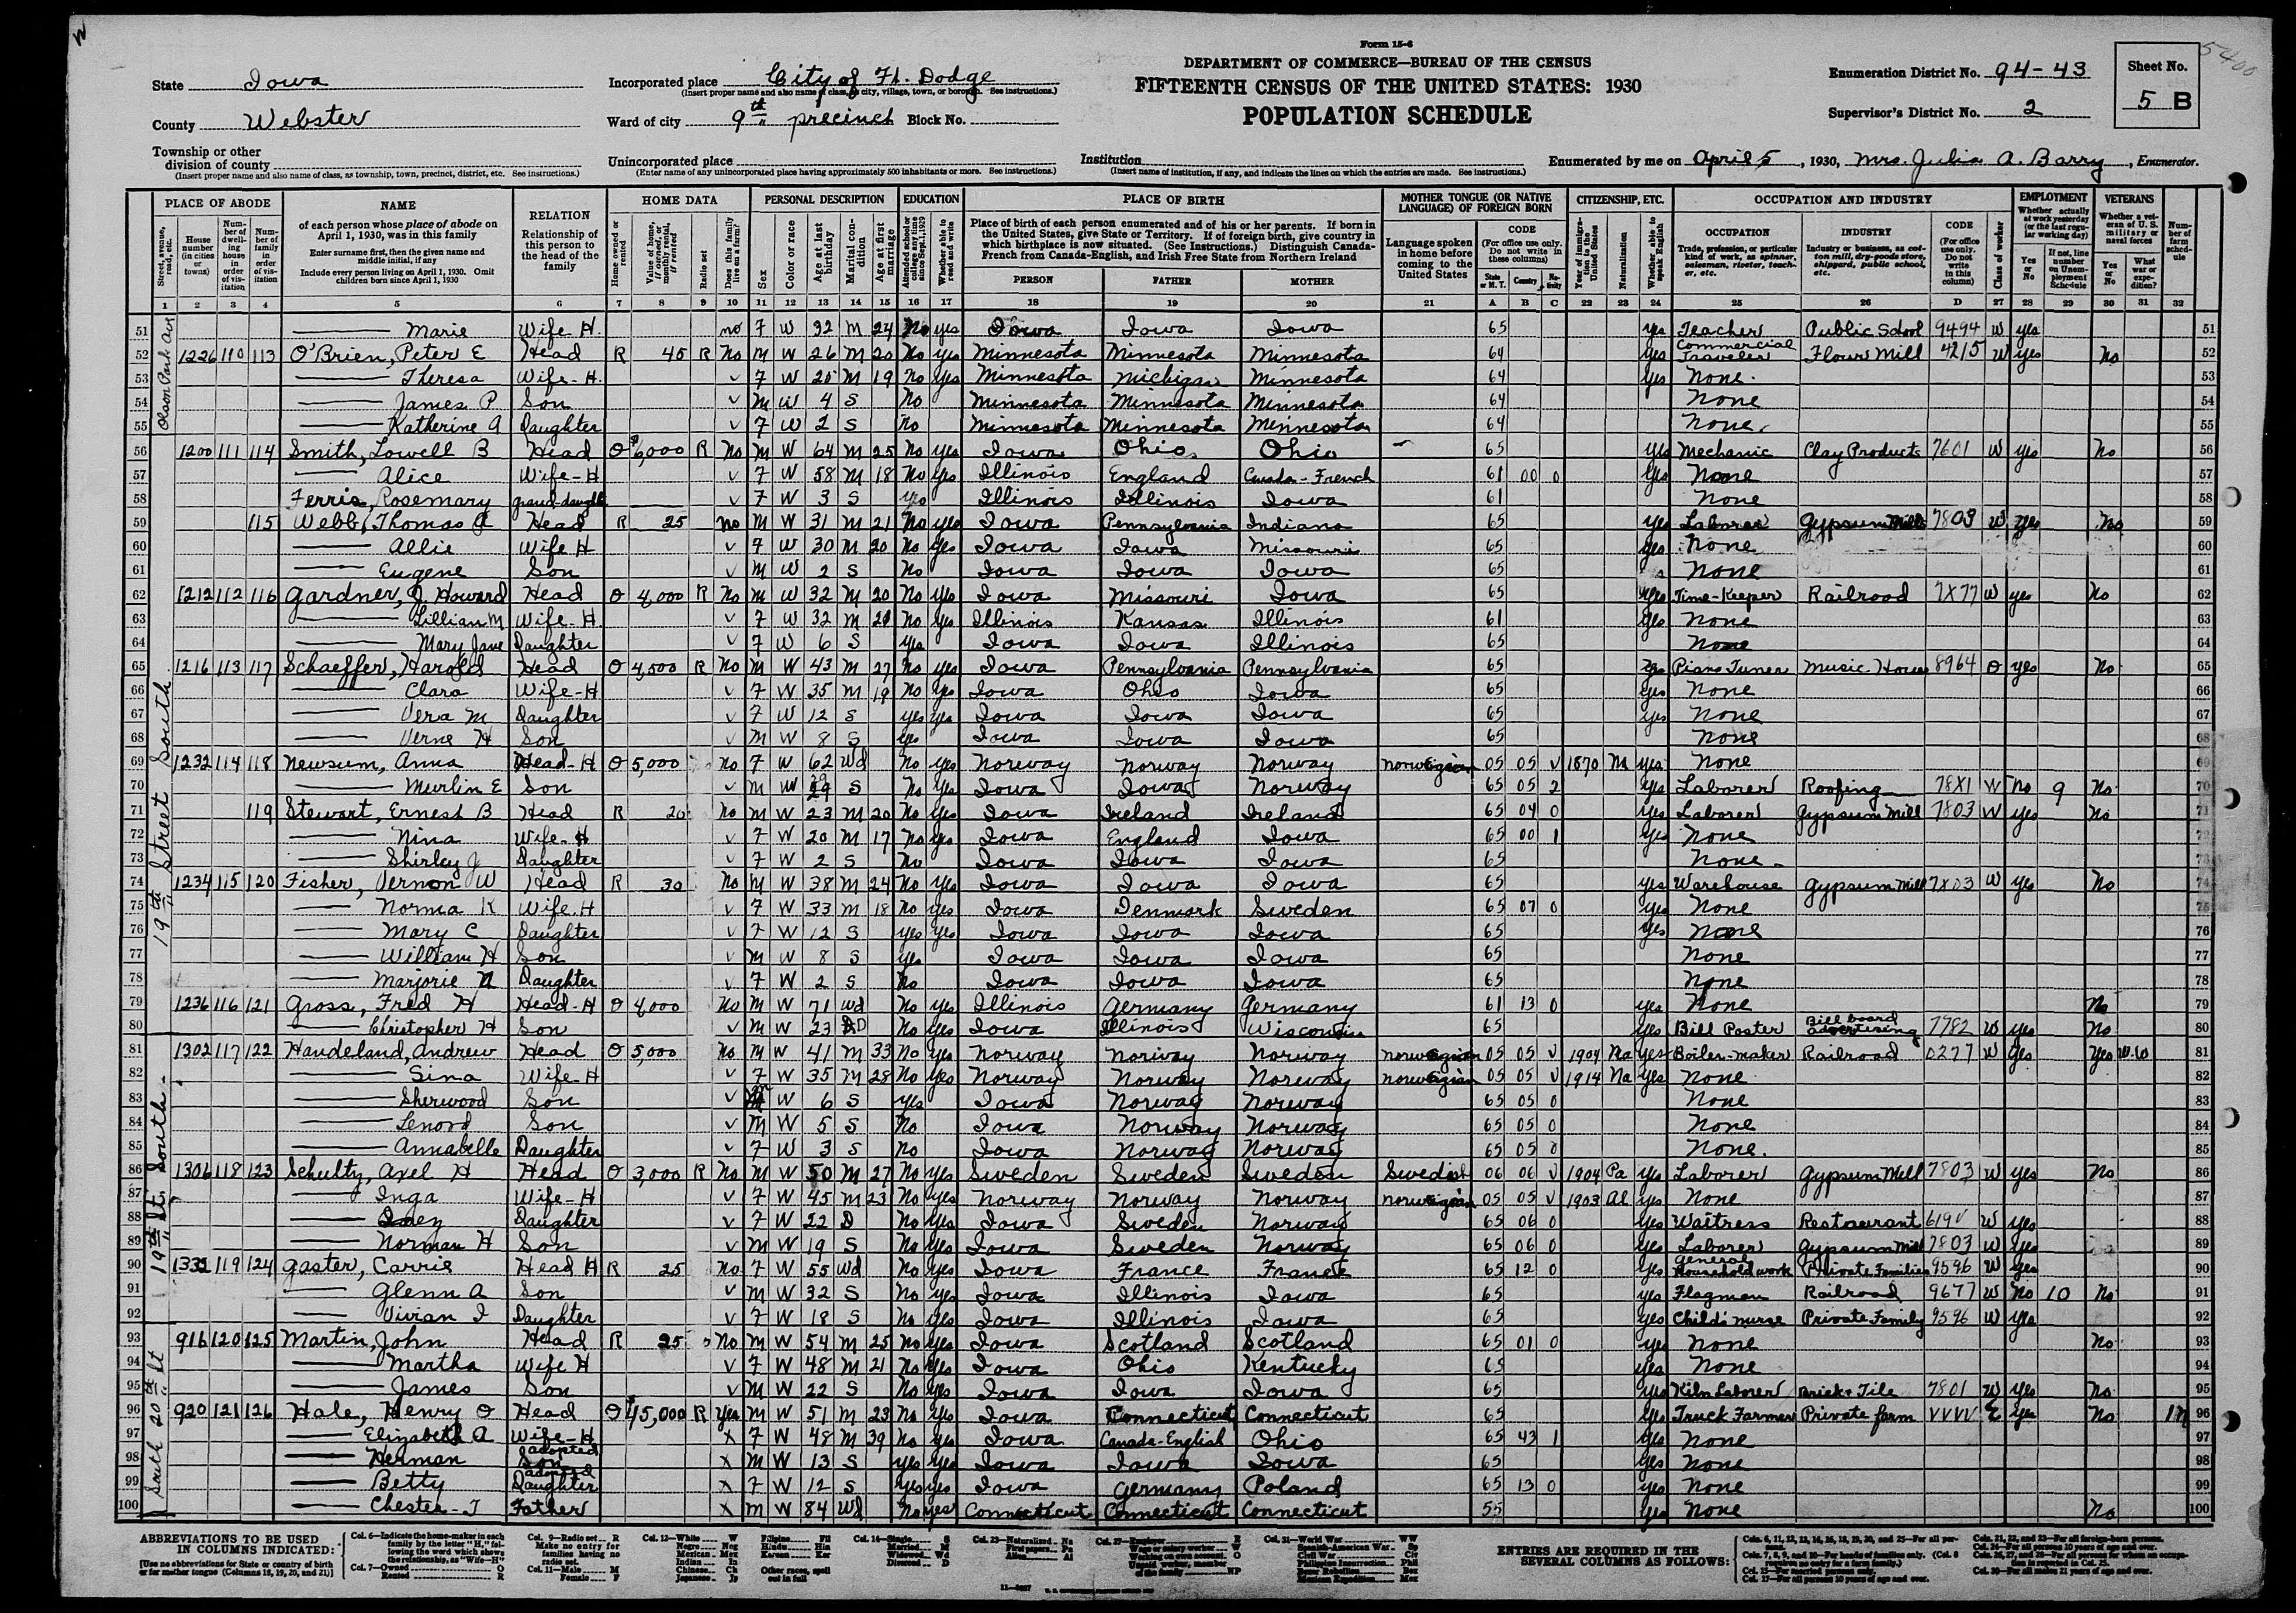 Form 15-6
DEPARTMENT OF COMMERCE—BUREAU OF THE CENSUS
FIFTEENTH CENSUS OF THE UNITED STATES: 1930
POPULATION SCHEDULE
State Iowa
County Webster
Township or other division of county
(Insert proper name and also name of class, as township, town, precinct, district, etc. See instructions.)
Incorporated place City of Ft. Dodge
(Insert proper name and also name of class, as city, village, town, or borough. See instructions.)
Ward of city 9th precinct Block No.
Unincorporated place
(Enter name of any unincorporated place having approximately 500 inhabitants or more. See instructions.)
Institution
(Insert name of institution, if any, and indicate the lines on which the entries are made. See instructions.)
Enumeration District No. 94-43
Supervisor's District No. 2
Sheet No. 5 B
Enumerated by me on April 5, 1930, Mrs. Julia A. Barry, Enumerator.
PLACE OF ABODE NAME RELATION HOME DATA PERSONAL DESCRIPTION EDUCATION PLACE OF BIRTH MOTHER TONGUE (OR NATIVE LANGUAGE) OF FOREIGN BORN CITIZENSHIP, ETC. OCCUPATION AND INDUSTRY EMPLOYMENT VETERANS
PERSON FATHER MOTHER
1 2 3 4 5 6 7 8 9 10 11 12 13 14 15 16 17 18 19 20 21 A B C 22 23 24 25 26 D 27 28 29 30 31 32
Olson Park Ave
51 Marie Wife-H. no F W 32 M 24 No yes Iowa Iowa Iowa 65 yes Teacher Public School 9494 W yes 51
52 1226 110 113 O'Brien, Peter E Head R 45 R No M W 26 M 20 No yes Minnesota Minnesota Minnesota 64 yes Commercial Traveler Flour Mill 4215 W yes No 52
53 Theresa Wife-H. F W 25 M 19 No yes Minnesota Michigan Minnesota 64 yes None 53
54 James P Son M W 4 S No Minnesota Minnesota Minnesota 64 None 54
55 Katherine A Daughter F W 2 S No Minnesota Minnesota Minnesota 64 None 55
19th Street South
56 1200 111 114 Smith, Lowell B Head O $6,000 R No M W 64 M 25 No yes Iowa Ohio Ohio 65 yes Mechanic Clay Products 7601 W yes No 56
57 Alice Wife-H F W 58 M 18 No yes Illinois England Canada-French 61 00 0 yes None 57
58 Ferris, Rosemary grand-daught F W 3 S Illinois Illinois Iowa 61 None 58
59 115 Webb, Thomas A Head R 25 no M W 31 M 21 No yes Iowa Pennsylvania Indiana 65 yes Laborer Gypsum Mill 7803 W yes No 59
60 Allie Wife H F W 30 M 20 No yes Iowa Iowa Missouri 65 yes None 60
61 Eugene Son M W 2 S No Iowa Iowa Iowa 65 None 61
62 1212 112 116 Gardner, J. Howard Head O 4,000 R No M W 32 M 20 No yes Iowa Missouri Iowa 65 yes Time-Keeper Railroad 7X77 W yes No 62
63 Lillian M Wife-H. F W 32 M 20 No yes Illinois Kansas Illinois 61 yes None 63
64 Mary Jane Daughter F W 6 S yes Iowa Iowa Illinois 65 None 64
65 1216 113 117 Schaeffer, Harold Head O 4,500 R No M W 43 M 27 No yes Iowa Pennsylvania Pennsylvania 65 yes Piano Tuner Music House 8964 O yes No 65
66 Clara Wife-H F W 35 M 19 No yes Iowa Ohio Iowa 65 yes None 66
67 Vera M Daughter F W 12 S yes yes Iowa Iowa Iowa 65 yes None 67
68 Verne H Son M W 8 S yes Iowa Iowa Iowa 65 None 68
69 1232 114 118 Newsum, Anna Head-H O 5,000 no F W 62 Wd No yes Norway Norway Norway Norwegian 05 05 V 1870 Na yes None 69
70 Murlin E Son M W 29 S No yes Iowa Iowa Norway 65 05 2 yes Laborer Roofing 78X1 W No 9 No 70
71 119 Stewart, Ernest B Head R 20 no M W 23 M 20 No yes Iowa Ireland Ireland 65 04 0 yes Laborer Gypsum Mill 7803 W yes No 71
72 Nina Wife-H F W 20 M 17 No yes Iowa England Iowa 65 00 1 yes None 72
73 Shirley J Daughter F W 2 S No Iowa Iowa Iowa 65 None 73
74 1234 115 120 Fisher, Vernon W Head R 30 No M W 38 M 24 No yes Iowa Iowa Iowa 65 yes Warehouse Gypsum Mill 7X03 W yes No 74
75 Norma K Wife-H F W 33 M 18 no yes Iowa Denmark Sweden 65 07 0 yes None 75
76 Mary C Daughter F W 12 S yes yes Iowa Iowa Iowa 65 yes None 76
77 William H Son M W 8 S yes Iowa Iowa Iowa 65 None 77
78 Marjorie N Daughter F W 2 S No Iowa Iowa Iowa 65 None 78
79 1236 116 121 Gross, Fred H Head-H O 4,000 No M W 71 Wd No yes Illinois Germany Germany 61 13 0 yes None No 79
80 Christopher H Son M W 23 D No yes Iowa Illinois Wisconsin 65 yes Bill Poster Bill board advertising 7782 W yes No 80
19th St. South
81 1302 117 122 Handeland, Andrew Head O 5,000 No M W 41 M 33 No yes Norway Norway Norway Norwegian 05 05 V 1904 Na yes Boiler-maker Railroad 0277 W yes Yes W.W 81
82 Sina Wife-H F W 35 M 28 No yes Norway Norway Norway Norwegian 05 05 V 1914 Na yes None 82
83 Sherwood Son M W 6 S yes Iowa Norway Norway 65 05 0 None 83
84 Lenord Son M W 5 S No Iowa Norway Norway 65 05 0 None 84
85 Annabelle Daughter F W 3 S no Iowa Norway Norway 65 05 0 None 85
86 1306 118 123 Schultz, Axel H Head O 3,000 R No M W 50 M 27 No yes Sweden Sweden Sweden Swedish 06 06 V 1904 Pa yes Laborer Gypsum Mill 7803 W yes No 86
87 Inga Wife-H F W 45 M 23 No yes Norway Norway Norway Norwegian 05 05 V 1903 Al yes None 87
88 Daughter F W 22 D No yes Iowa Sweden Norway 65 06 0 yes Waitress Restaurant 619V W yes 88
89 Norman H Son M W 19 S No yes Iowa Sweden Norway 65 06 0 yes Laborer Gypsum Mill 7803 W yes 89
90 1332 119 124 Gaster, Carrie Head H R 25 no F W 55 Wd No yes Iowa France France 65 12 0 yes General Household work Private Families 9596 W yes 90
91 Glenn A Son M W 32 S No yes Iowa Illinois Iowa 65 yes Flagman Railroad 9677 W No 10 No 91
92 Vivian I Daughter F W 18 S No yes Iowa Illinois Iowa 65 yes Child's nurse Private Family 9596 W yes 92
South 20th St
93 916 120 125 Martin, John Head R 25 No M W 54 M 25 No yes Iowa Scotland Scotland 65 01 0 yes None No 93
94 Martha Wife H F W 48 M 21 No yes Iowa Ohio Kentucky 65 yes None 94
95 James Son M W 22 S No yes Iowa Iowa Iowa 65 yes Kiln Laborer Brick & Tile 7801 W yes No 95
96 920 121 126 Hale, Henry O Head O $45,000 R Yes M W 51 M 23 No yes Iowa Connecticut Connecticut 65 yes Truck Farmer Private farm VVVV E yes No 96
97 Elizabeth A Wife-H X F W 48 M 39 No yes Iowa Canada-English Ohio 65 43 1 yes None 97
98 Herman adopted Son X M W 13 S yes yes Iowa Iowa Iowa 65 yes None 98
99 Betty adopted Daughter X F W 12 S yes yes Iowa Germany Poland 65 13 0 yes None 99
100 Chester-T Father X M W 84 Wd No yes Connecticut Connecticut Connecticut 55 yes None No 100
ABBREVIATIONS TO BE USED IN COLUMNS INDICATED:
ENTRIES ARE REQUIRED IN THE SEVERAL COLUMNS AS FOLLOWS: